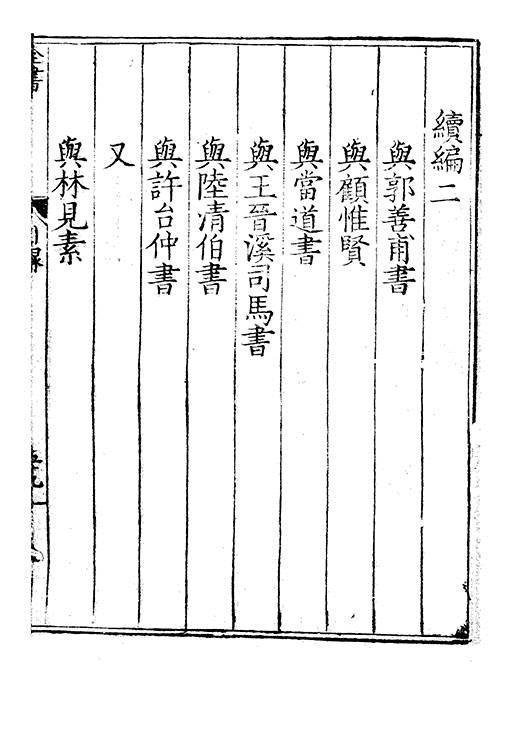 續編二
與郭善甫書
與顧惟賢
與當道書
與王晉溪司馬書
與陸清伯書
與許台仲書
又
與林見素
全書
目録